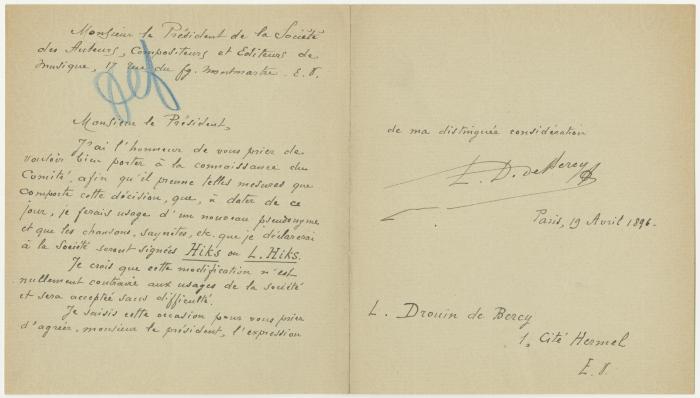 Monsieur le Président de la Société
des Auteurs, Compositeurs et Editeurs de
musique, 17 rue du fg. Montmartre. E. V.
Monsieur le Président,
J'ai l'honneur de vous prier de
vouloir bien porter à la connaissance du
Comité, afin qu'il prenne telles mesures que
comporte cette décision, que, à dater de ce
jour, je ferais usage d'un nouveau pseudonyme
et que les chansons, saynètes, etc. que je déclarerai
à la Société seront signées Hiks ou L. Hiks.
Je crois que cette modification n'est
nullement contraire aux usages de la société
et sera acceptée sans difficulté.
Je saisis cette occasion pour vous prier
d'agréer, monsieur le président, l'expression
de ma distinguée considération
L. D. de Bercy
Paris, 19 Avril 1896.
L. Drouin de Bercy
1, Cité Hermel
E. V.